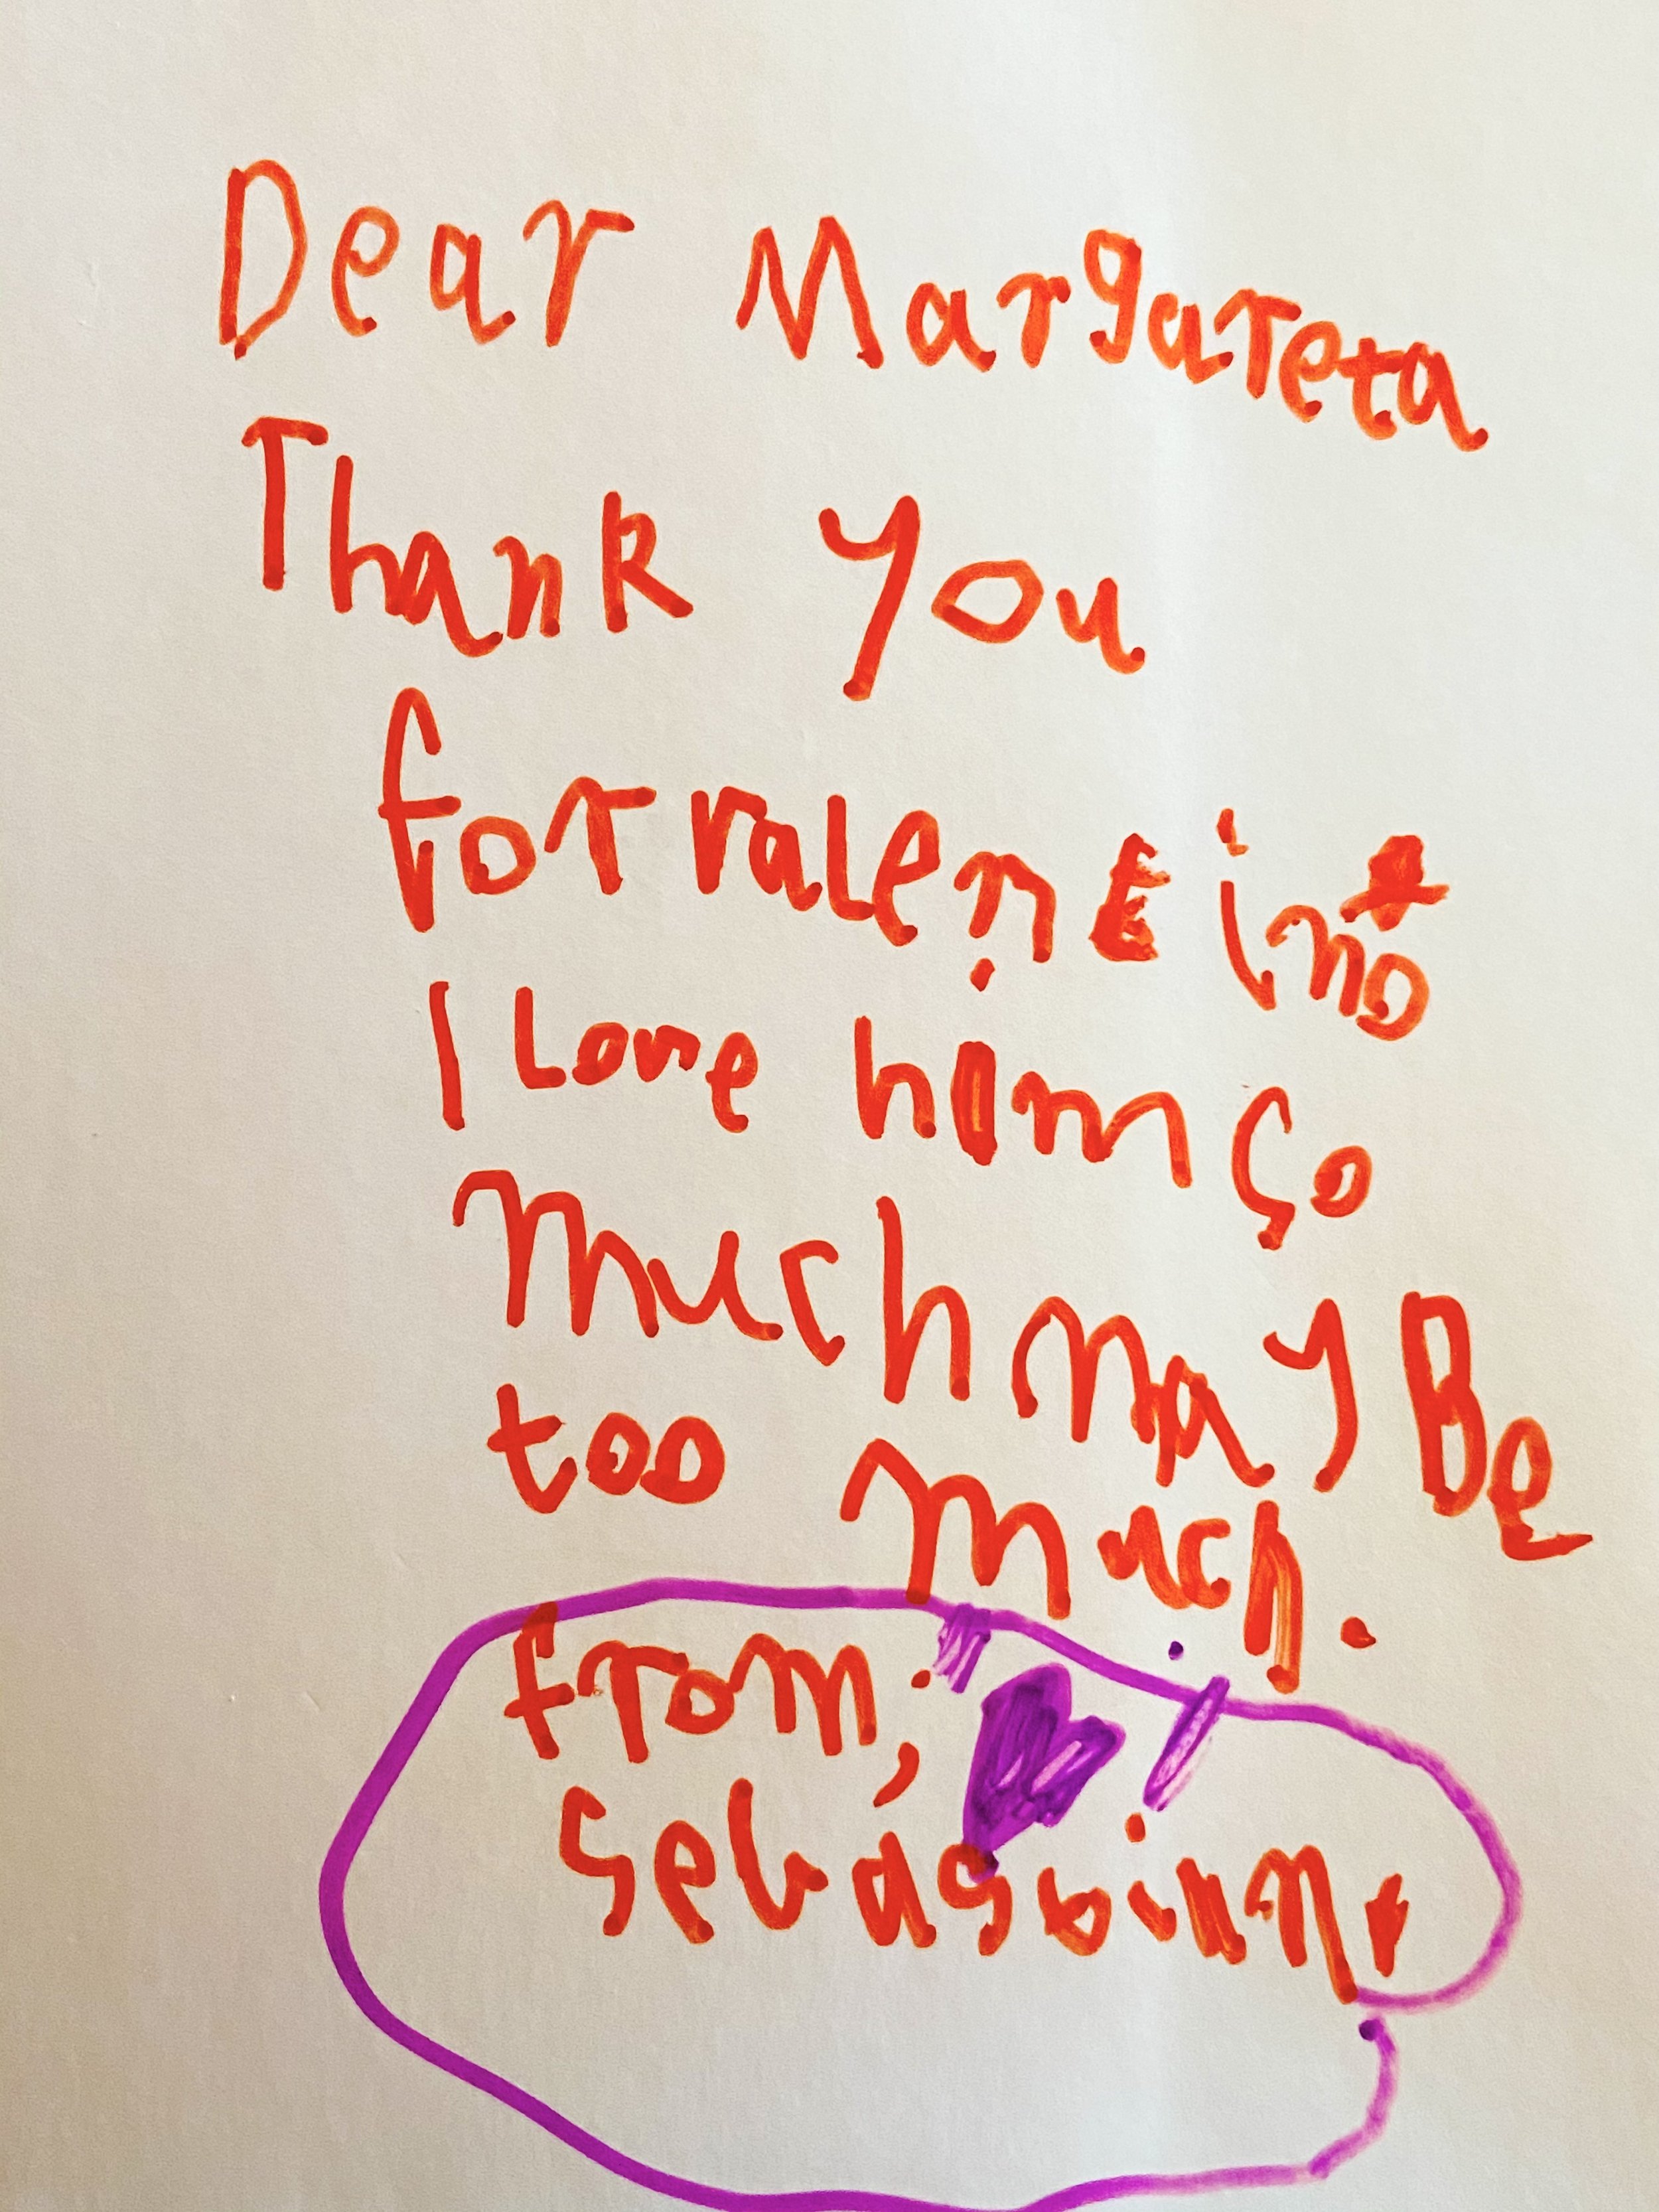 Dear Margareta
Thank you
for valentino
I Love him so
much may Be
too much.
from,
Sebástian